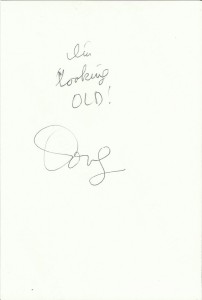 I'm
looking
OLD!
Doug